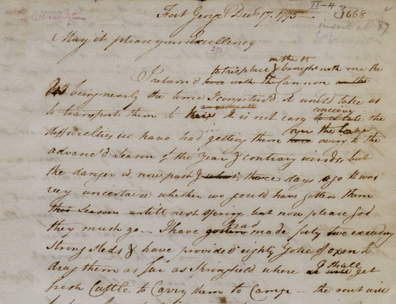 Fort George Decr 17, 1775
May it please your Excellency
I return'd to this place on the 15 & brought with me the Cannon
being nearly the time I conjectur'd it would take us
to transport them to here. It is not easy to conceive the
difficulties we have had getting them over the Lake owing to the
advanc'd Season of the Year & contrary winds, but
the danger is now past & three days ago it was
very uncertain whether we could have gotten them
until next Spring, but now please God
they must go – I have had made forty two exceeding
Strong Sleds & have provided eighty yoke of Oxen to
drag them as far as Springfield where I shall get
fresh Cattle to Carry them to Camp – the rout will